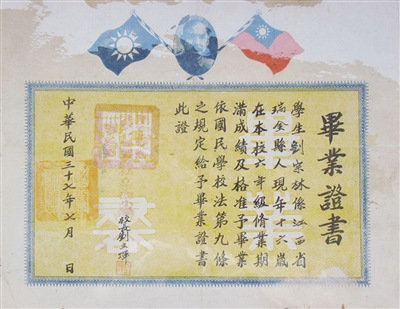 畢業證書
學生劉宗林係江西省
瑞金縣人現年十六歲
在本校六年級脩業期
滿成績及格准予畢業
依國民學校法第九條
之規定給予畢業證書
此證
校長劉
中華民國三十七年七月 日